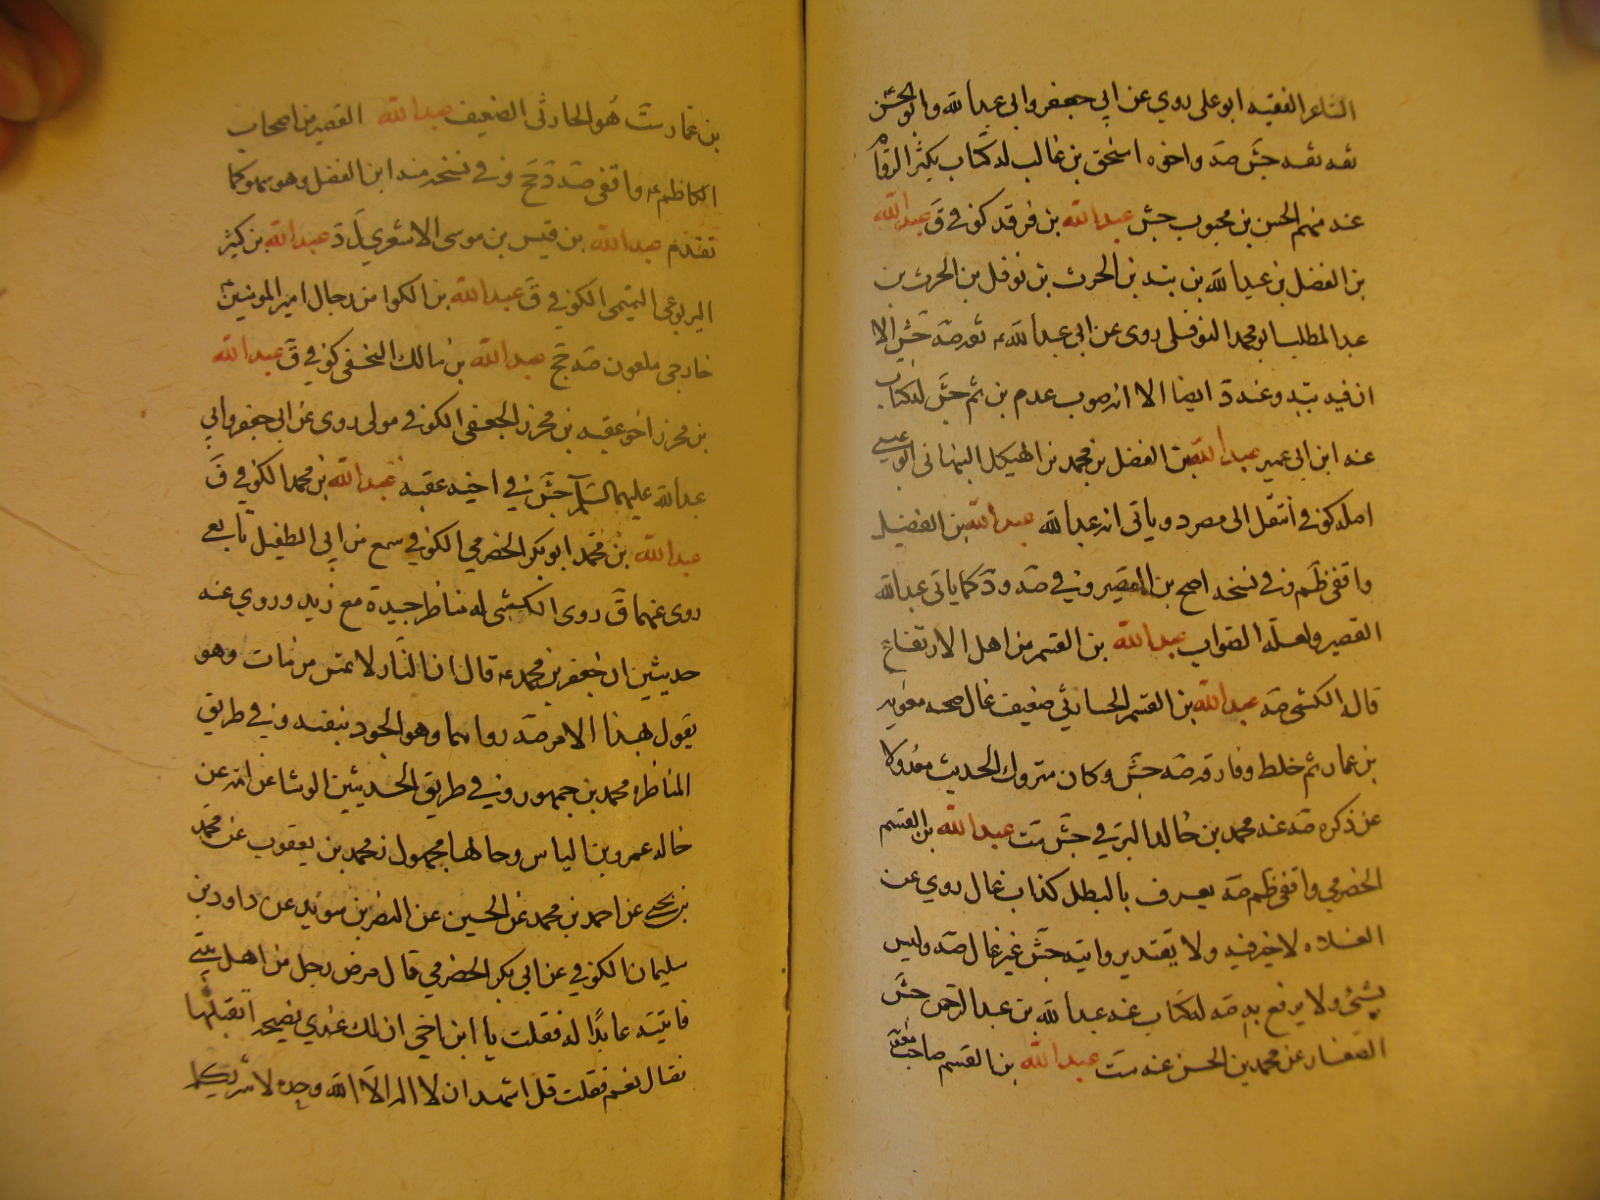 الشاعر الفقيه ابو علي روي عن ابي جعفر وابي عبدالله وابو الحسن
ثقه ثقه جش صه واخوه اسحق بن غالب له كتاب يكثر الرواة
عنه منهم الحسن بن محبوب جش عبدالله بن فرقد كوفي ق عبدالله
بن الفضل بن عبدالله بن ببه بن الحرث بن نوفل بن الحرث بن
عبد المطلب ابو محمد النوفلي روى عن ابي عبدالله ع ثقه صه جش الا
ان فيه ببه وعند د ايضا الا انه صوب عدم بن ثم جش له كتاب
عنه ابن ابي عمير عبدالله بن الفضل بن محمد بن الهيكل النبهاني ابو عيسى
اصله كوفي انتقل الى مصر د وياتي انه عبدالله عبدالله بن الفضيل
واقفي ظم وفي نسخه اصح بن القصير وفي صه ود كما ياتي عبدالله
القصير ولعله الصواب عبدالله بن القسم من اهل الارتفاع
قاله الكشي صه عبدالله بن القسم الحارثي ضعيف غال صحب معويه
بن عمار ثم خلط وفارقه صه جش وكان متروك الحديث معدولا
عن ذكره صه عنه محمد بن خالد البرقي جش ست عبدالله بن القسم
الحضرمي واقفي ظم صه يعرف بالبطل كذاب غال روي عن
الغلاه لا خير فيه ولا يعتد بروايته جش غير غال صه وليس
بشيء ولا يرتفع به صه له كتاب عنه عبدالله بن عبد الرحمن جش
الصفار عن محمد بن الحسن عنه ست عبدالله بن القسم صاحب معويه
بن عمار ست هو الحارثى الضعيف عبدالله القصير من اصحاب
الكاظم ع واقفى صه د جخ وفي نسخه منه ابن الفضل وهو سهو كما
تقدم عبدالله بن قيس بن موسى الاشعري ل د عبدالله بن كثير
اليربوعى التميمى الكوفي ق عبدالله بن الكوا من رجال امير المومنين
خارجى ملعون صه جخ عبدالله بن مالك النخعى كوفي ق عبدالله
بن محرز اخو عقبه بن محرز الجعفى الكوفي مولى روى عن ابي جعفر وابي
عبدالله عليهما السلام جش في اخيه عقبه عبدالله بن محمد الكوفي ق
عبدالله بن محمد ابو بكر الحضرمي الكوفي سمع من ابي الطفيل تابعي
روى عنهما ق روى الكشى له مناظرة جيدة مع زيد وروي عنه
حديثين ان جعفر بن محمد ع قال ان النار لا تمس من مات وهو
يقول بهذا الامر صه رواهما وهو الجود بنفسه وفي طريق
المناظره محمد بن جمهور وفي طريق الحديثين الوشا عن امه عن
خاله عمرو بن الياس وحالها مجهول محمد بن يعقوب عن محمد
بن يحيى عن احمد بن محمد عن الحسين عن النضر بن سويد عن داود بن
سليمان الكوفي عن ابي بكر الحضرمي قال مرض رجل من اهل بيتي
فاتيته عايدا له فقلت يا ابن اخي ان لك عندي نصيحه اتقبلها
فقال نعم فقلت قل اشهد ان لا اله الا الله وحده لا شريك له